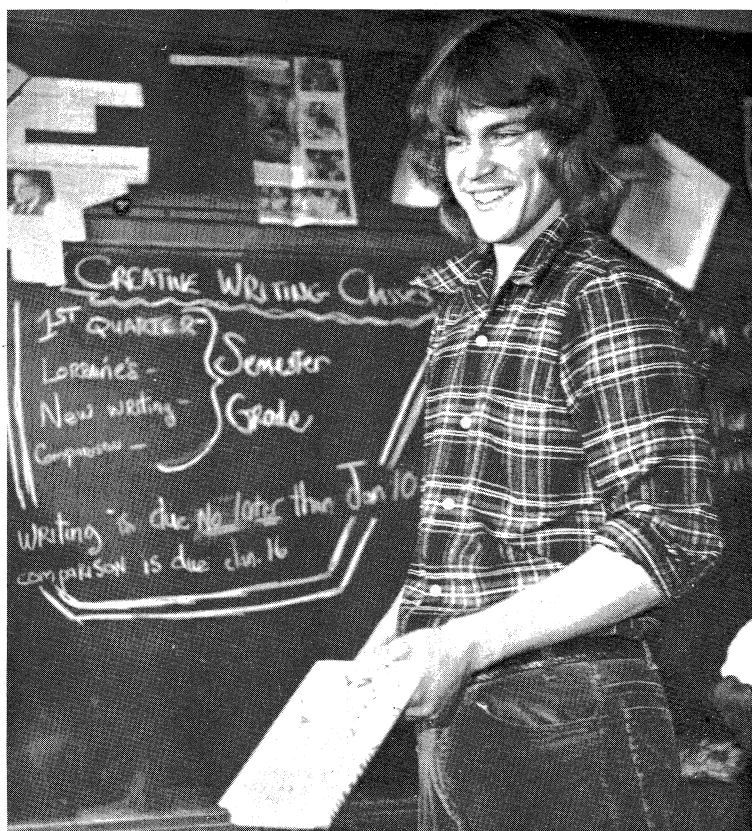 CREATIVE WRITING
1ST QUARTER-
LORRAINE'S -
NEW WRITING -
Comparison -
Semester
Grade
WRITING is due No later than Jan 10
COMPARISON IS due Jan. 16